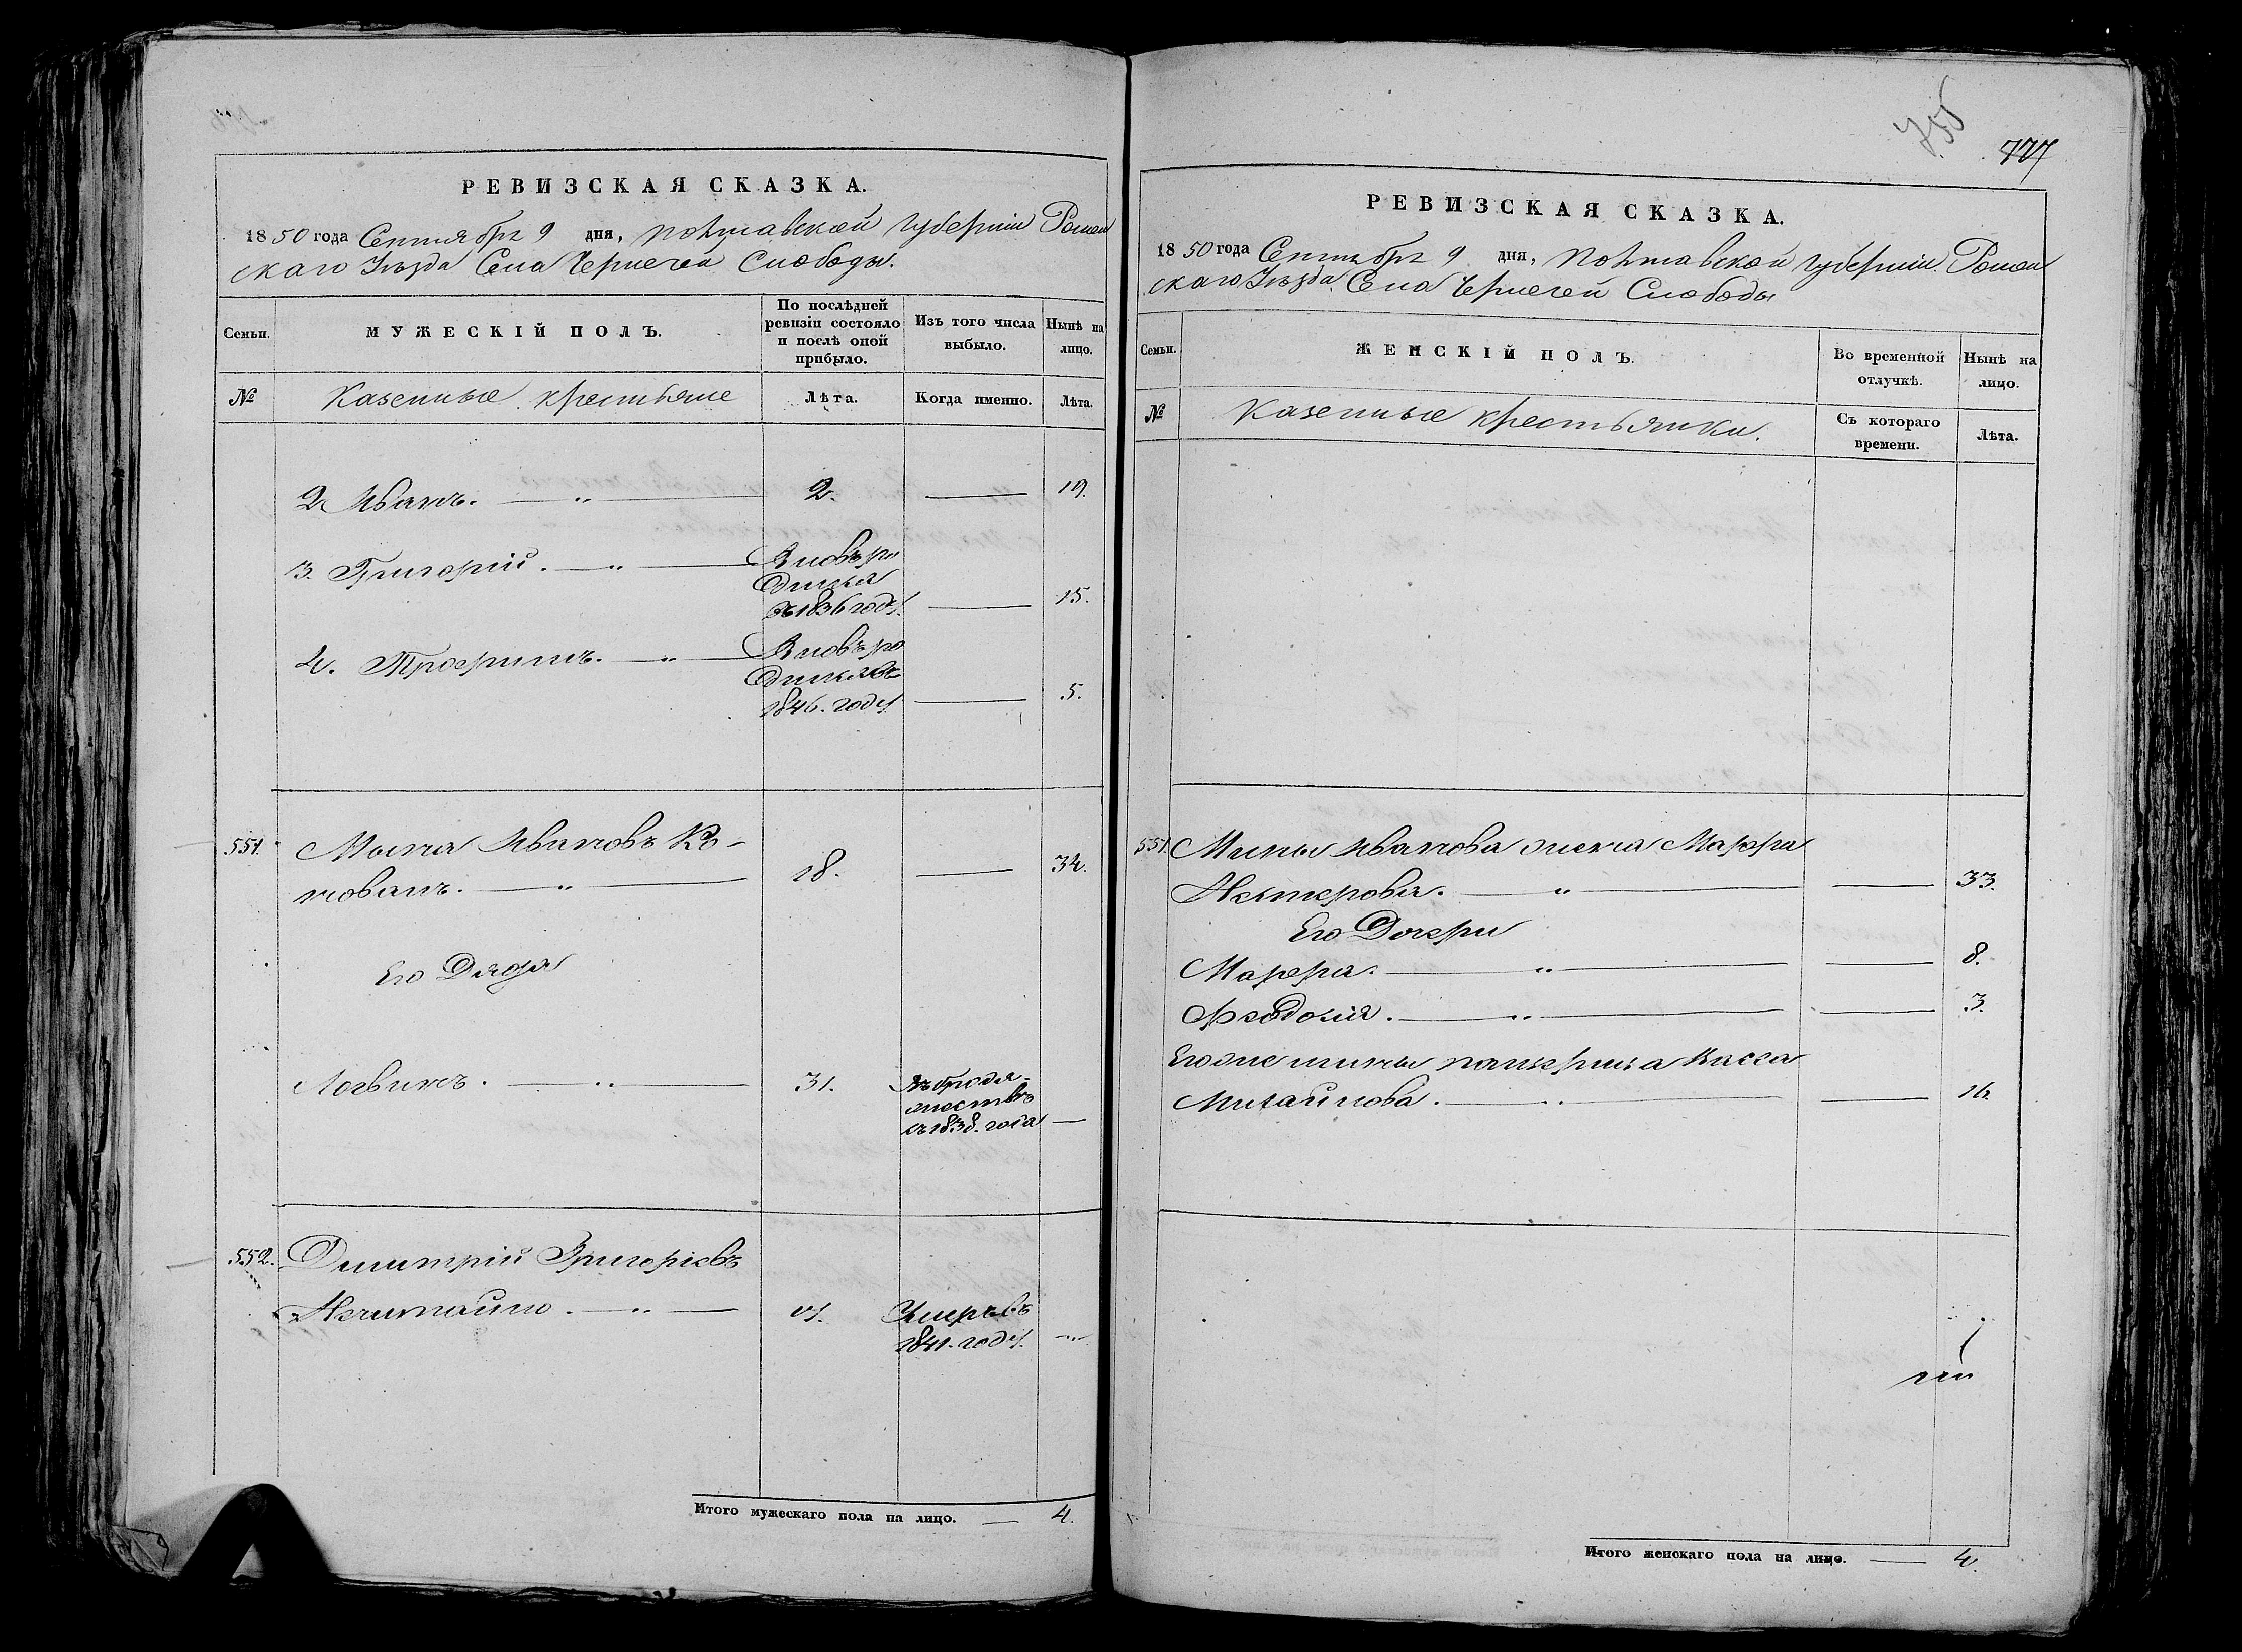 РЕВИЗСКАЯ СКАЗКА.
1850 года Сентября 9 дня, Полтавской Губерніи Ромен
скаго Уѣзда Села Чернечей Слободы.
Семьи.
МУЖЕСКІЙ ПОЛЪ.
По послѣдней
ревизіи состояло
и послѣ оной
прибыло.
Изъ того числа
выбыло.
Нынѣ на
лицо.
№
Казенные крестьяне
Лѣта.
Когда именно.
Лѣта.
2 Иванъ. — " — 2. — 19.
3. Григорій. — " — Вновь ро
дился
въ 1836 году. — 15.
4. Трофимъ. — " — Вновь ро
дился въ
1846. году — 5.
551. Мина Ивановъ Ко-
новалъ. — " — 18. — 34.
Его Дядя
Логвинъ. — " — 31. Въ бродя-
жествѣ
съ 1838. года —
552. Дмитрій Григорієвъ
Нечитайло. — " — Умеръ въ
1841. году. — " —
Итого мужескаго пола на лицо. — 4.
755
777
РЕВИЗСКАЯ СКАЗКА.
1850 года Сентября 9 дня, Полтавской Губерніи Ромен
скаго Уѣзда Села Чернечей Слободы
Семьи.
ЖЕНСКІЙ ПОЛЪ.
Во временной
отлучкѣ.
Нынѣ на
лицо.
№
Казенные крестьянки.
Съ котораго
времени.
Лѣта.
551. Мины Иванова жена Марфа
Нестерова. — " — — 33.
Его Дочери
Марфа. — " — — 8.
Феодосія. — " — — 3.
Его же мины падчерица Васса
Михайлова. — " — — 16.
Итого женскаго пола на лицо. — 4.